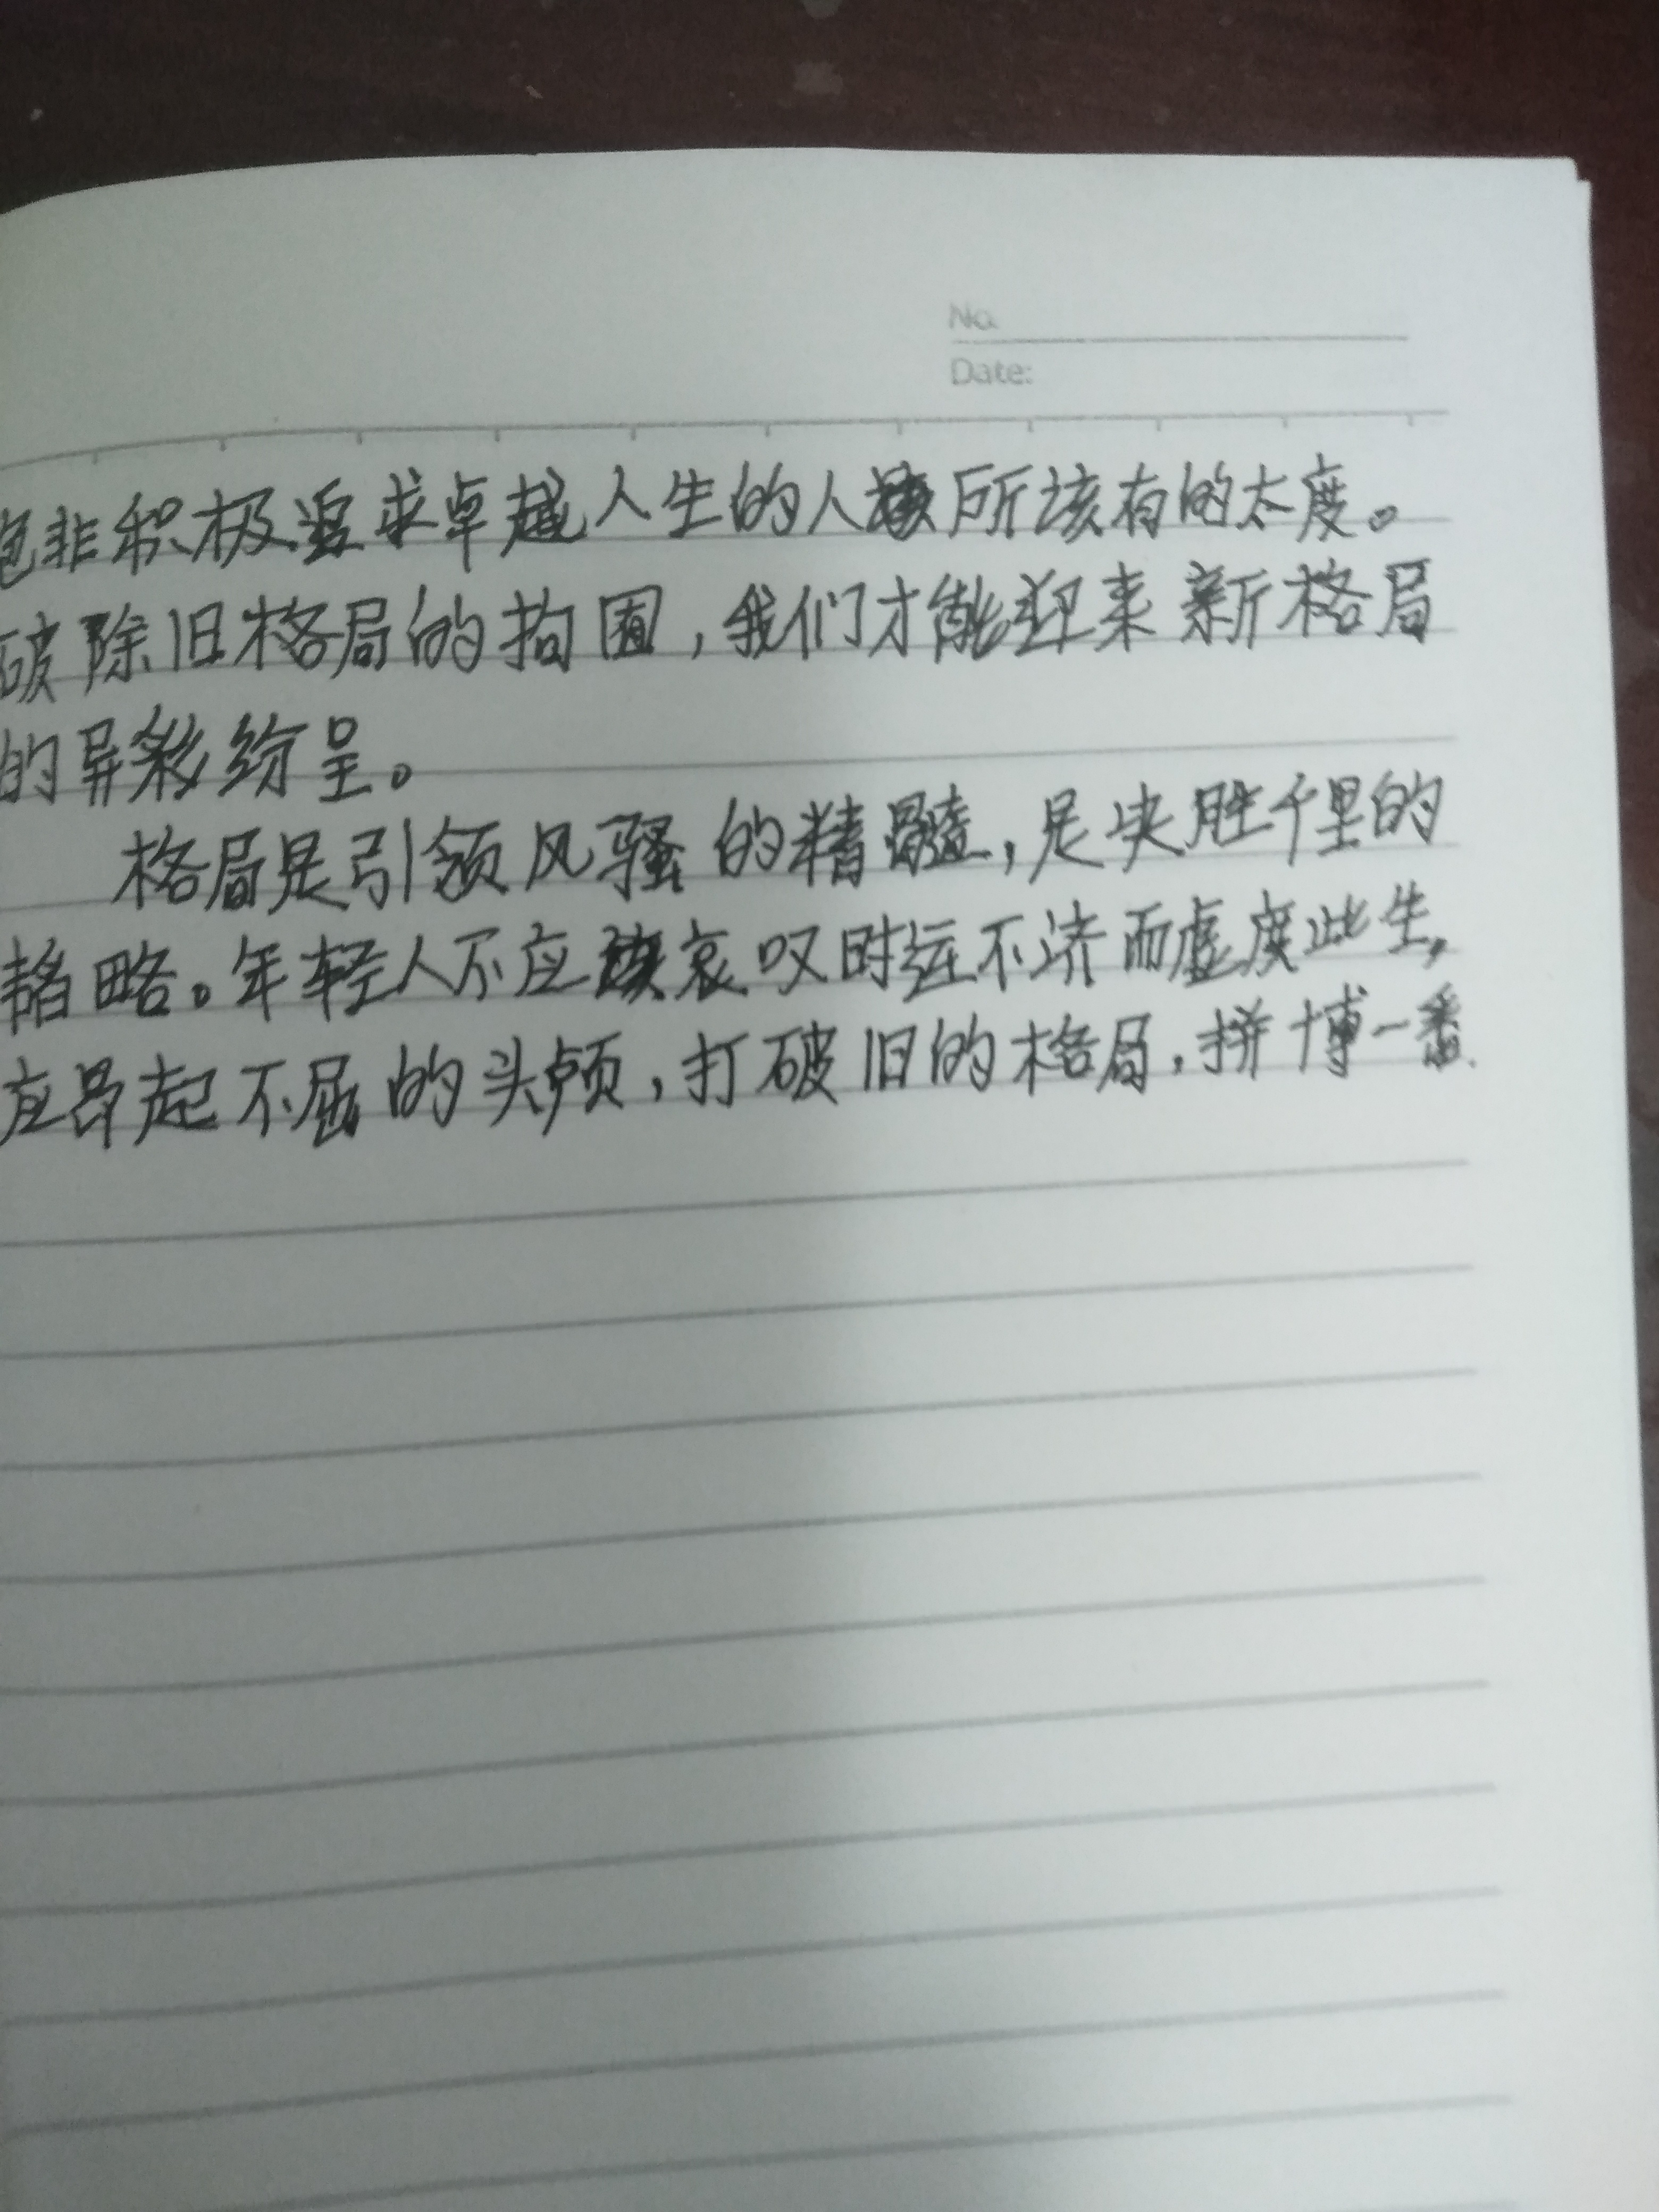 No.
Date:
绝非积极追求卓越人生的人所该有的太度。
破除旧格局的拘囿，我们才能迎来新格局
的异彩纷呈。
格局是引领风骚的精髓，是决胜千里的
韬略。年轻人不应哀叹时运不济而虚度此生，
应昂起不屈的头颅，打破旧的格局，拼博一番.